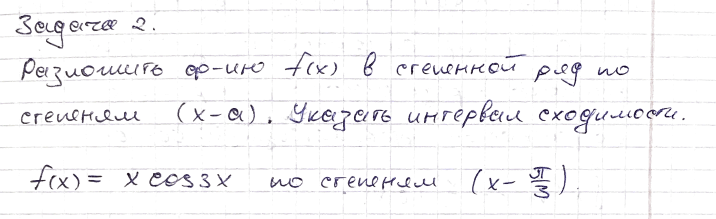 Задача 2.
Разложить ф-ию f(x) в степенной ряд по
степеням (x-a). Указать интервал сходимости.
f(x) = x cos3x по степеням (x - π/3).